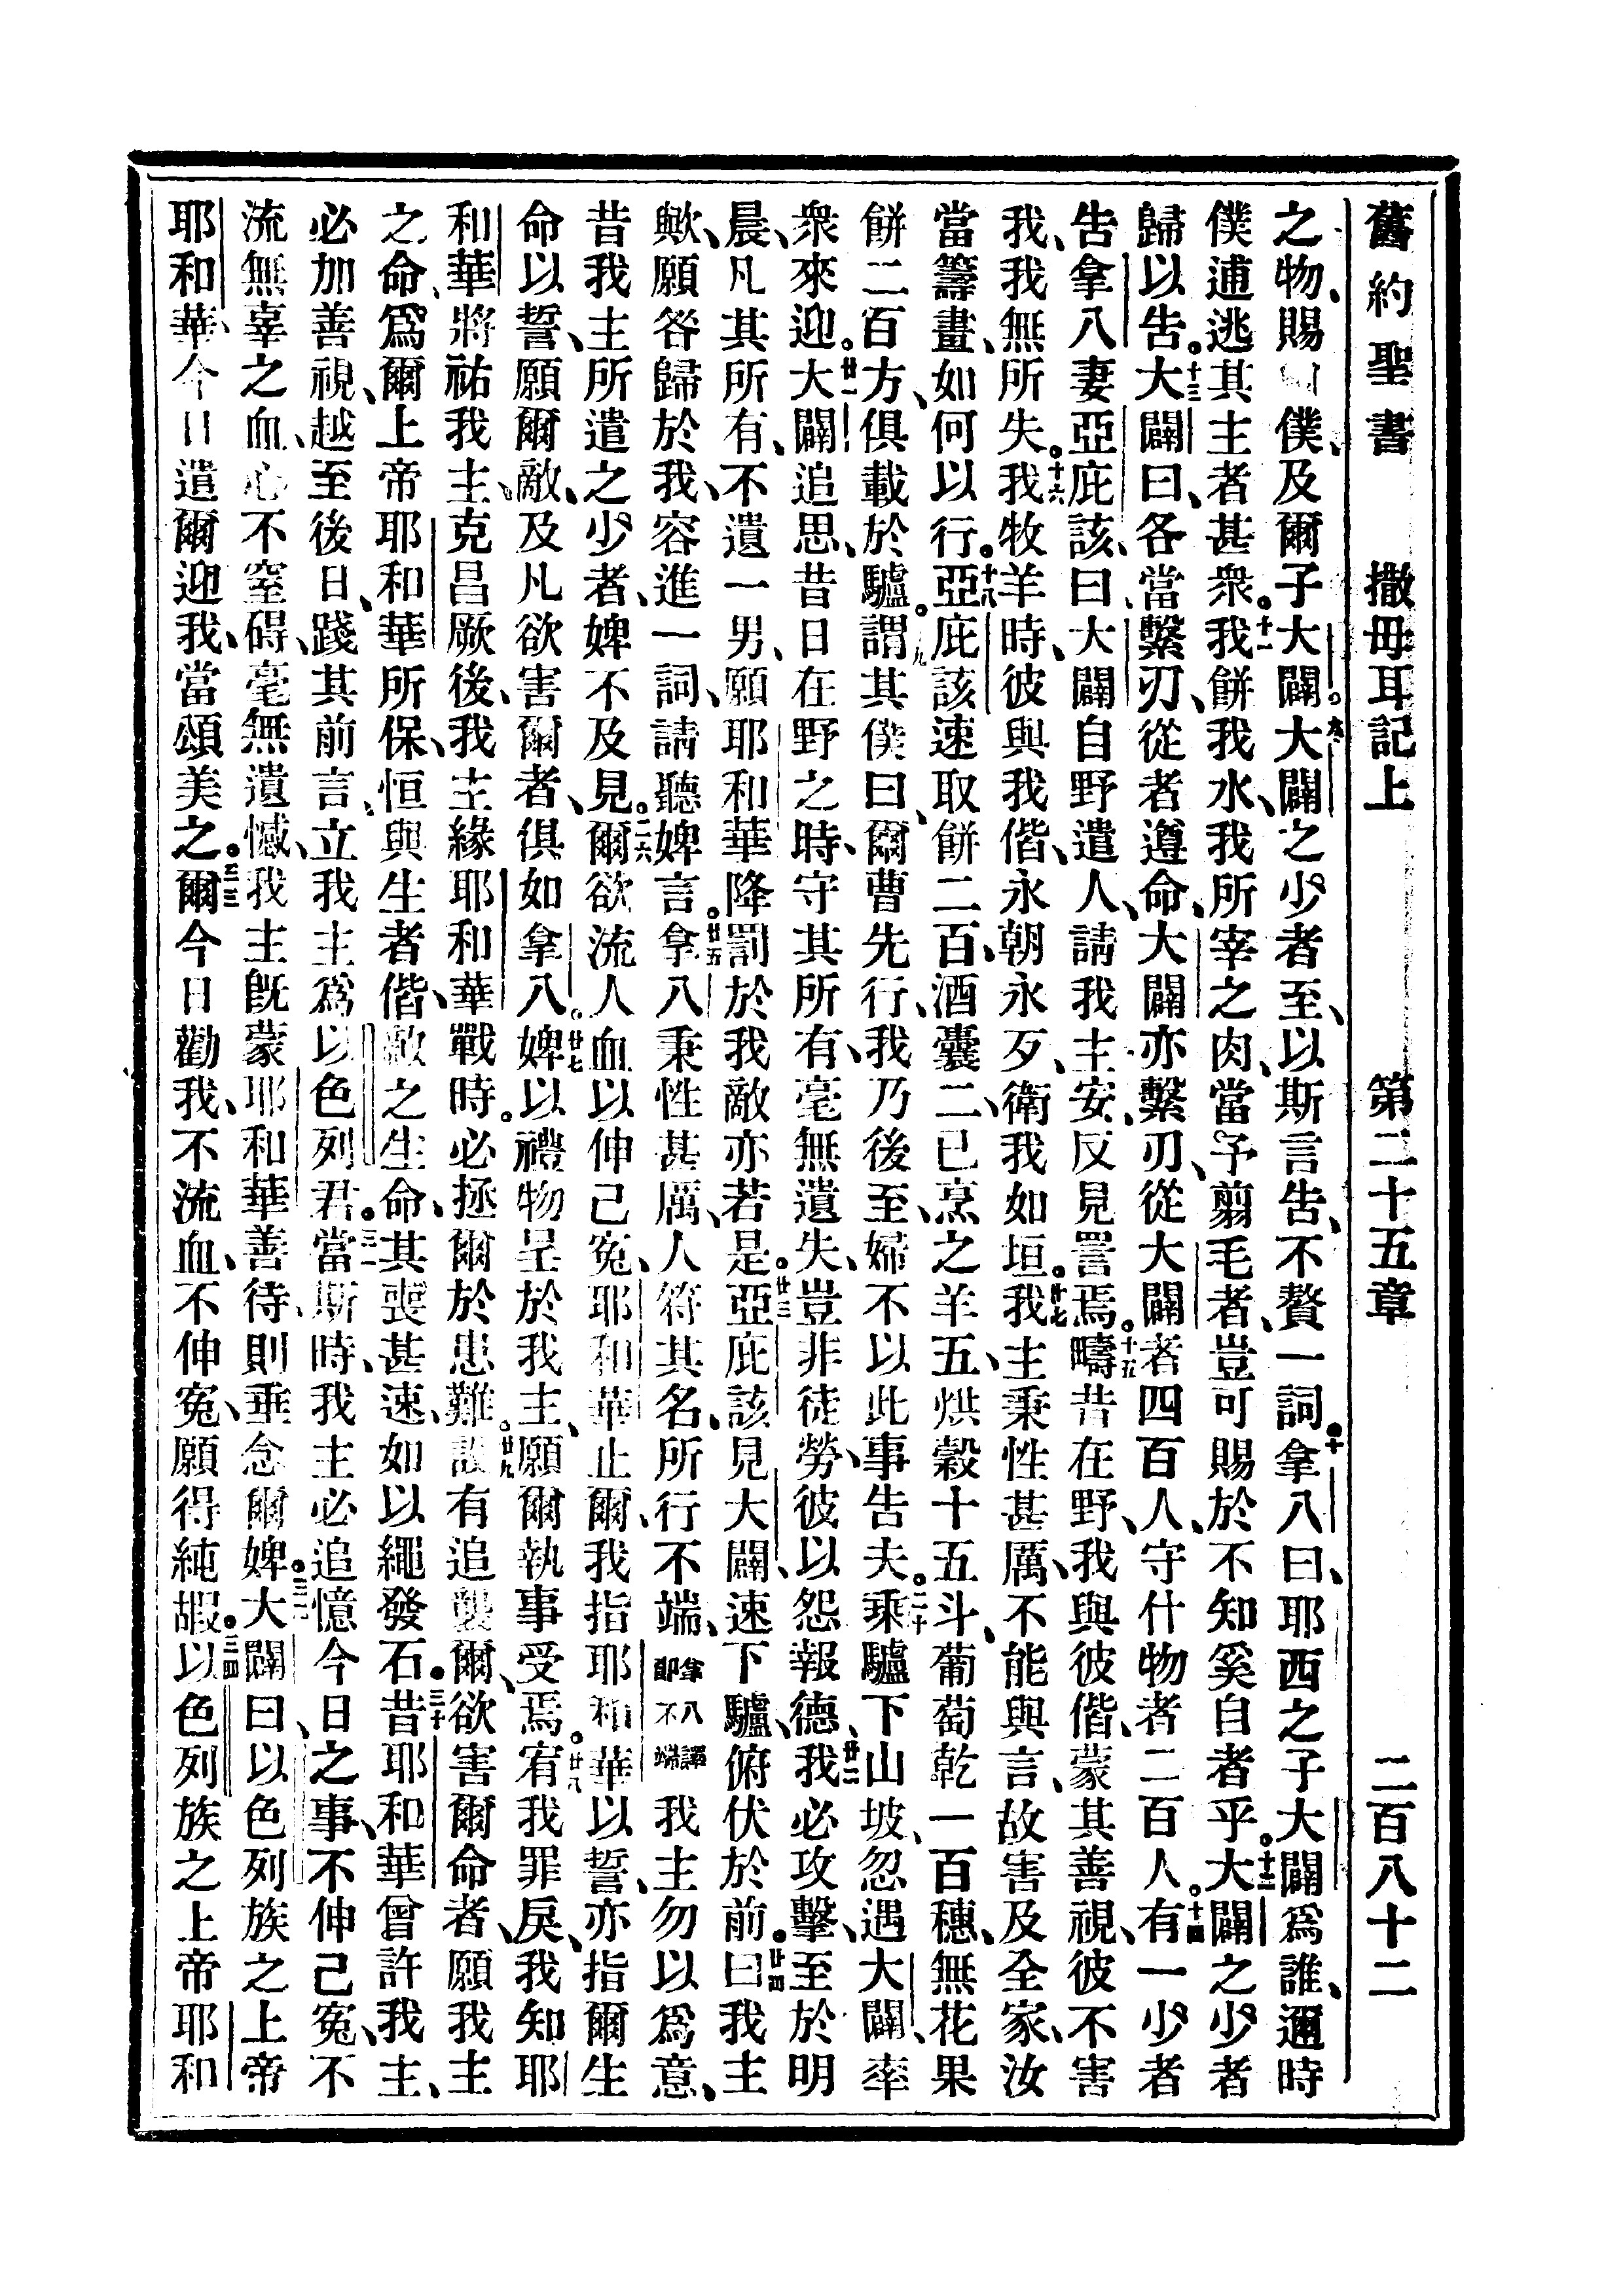 舊約聖書 撒母耳記上 第二十五章 二百八十二
之物、賜僕、及爾子大闢。九大闢之少者至、以斯言告、不贅一詞。十拿八曰、耶西之子大闢爲誰、邇時
僕逋逃其主者甚衆。十一我餅我水、我所宰之肉、當予翦毛者、豈可賜於不知奚自者乎。十二大闢之少者
歸以告。十三大闢曰、各當繫刃、從者遵命、大闢亦繫刃、從大闢者四百人、守什物者二百人。十四有一少者
告拿八妻亞庇該、曰、大闢自野遣人、請我主安、反見詈焉。十五疇昔在野、我與彼偕、蒙其善視、彼不害
我、我無所失。十六我牧羊時、彼與我偕、永朝永歹、衛我如垣。十七我主秉性甚厲、不能與言、故害及全家、汝
當籌畫、如何以行。十八亞庇該速取餅二百、酒囊二、已烹之羊五、烘穀十五斗、葡萄乾一百穗、無花果
餅二百方、俱載於驢。十九謂其僕曰、爾曹先行、我乃後至、婦不以此事告夫。二十乘驢下山坡、忽遇大闢、率
衆來迎。廿一大闢追思、昔日在野之時、守其所有、毫無遺失、豈非徒勞、彼以怨報德、廿二我必攻擊、至於明
晨、凡其所有、不遺一男、願耶和華降罰於我敵亦若是。廿三亞庇該見大闢、速下驢、俯伏於前。廿四曰我主
歟、願咎歸於我、容進一詞、請聽婢言。廿五拿八秉性甚厲、人符其名、所行不端、拿八譯卽不端我主勿以爲意、
昔我主所遣之少者、婢不及見。二六爾欲流人血以伸己冤、耶和華止爾、我指耶和華以誓、亦指爾生
命以誓、願爾敵、及凡欲害爾者、俱如拿八。廿七婢以禮物呈於我主、願爾執事受焉。廿八宥我罪戾、我知耶
和華將祐我主、克昌厥後、我主緣耶和華戰時。必拯爾於患難。廿九設有追襲爾、欲害爾命者、願我主
之命、爲爾上帝耶和華所保、恒與生者偕、敵之生命、其喪甚速、如以繩發石。三十昔耶和華曾許我主、
必加善視、越至後日、踐其前言、立我主爲以色列君。三一當斯時、我主必追憶今日之事、不伸己冤、不
流無辜之血、心不窒碍、毫無遺憾、我主旣蒙耶和華善待、則垂念爾婢。三二大闢曰、以色列族之上帝
耶和華、今日遺爾迎我、當頌美之。三三爾今日勸我、不流血、不伸冤、願得純嘏。三四以色列族之上帝耶和